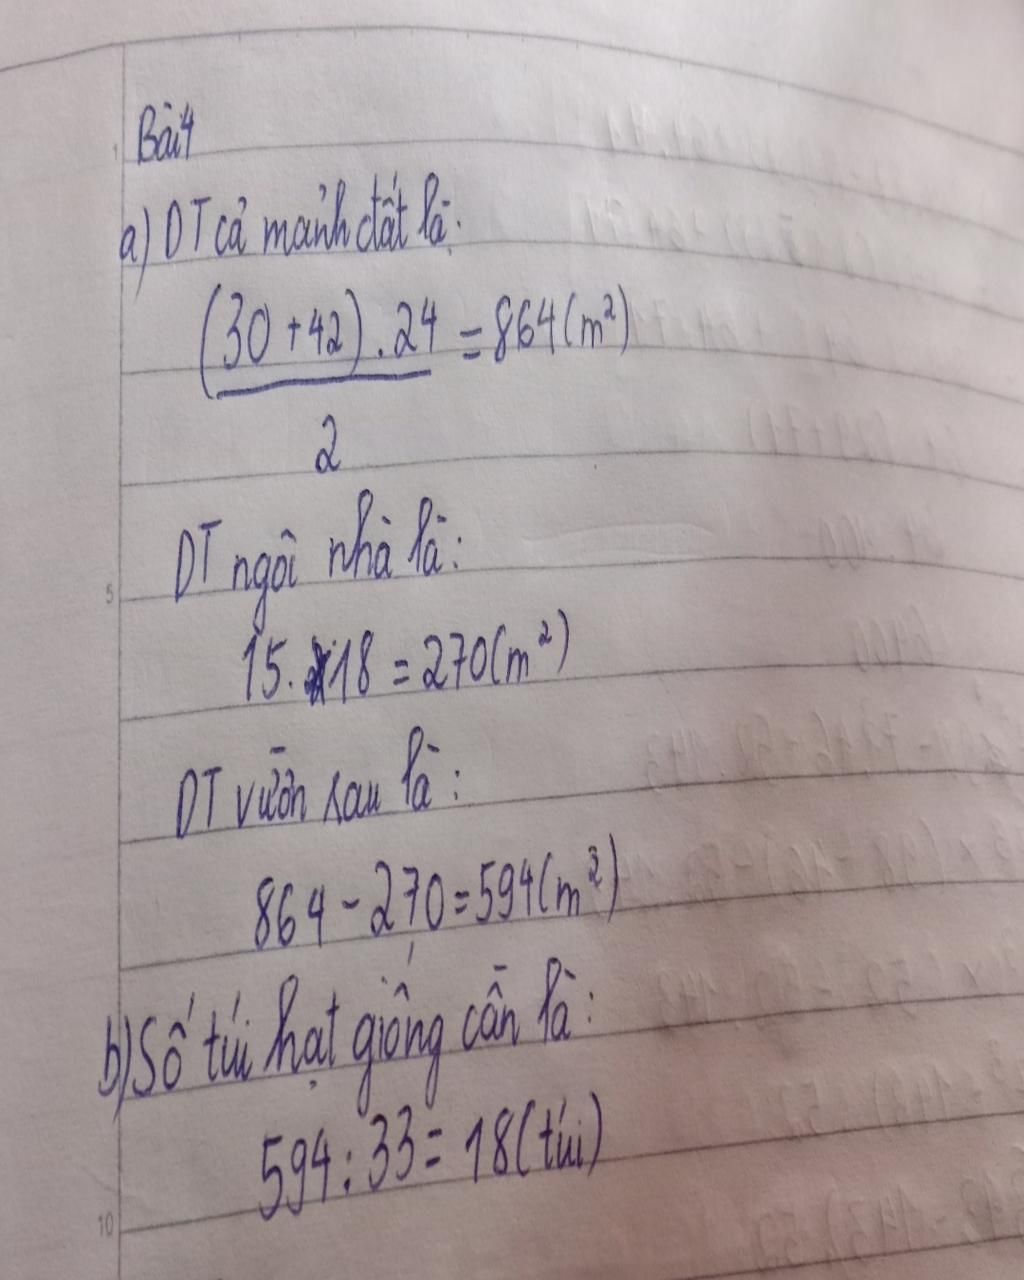 Bài 4
a) DT cả mảnh đất là:
(30 + 42) . 24 = 864 (m²)
2
DT ngôi nhà là:
15 . 18 = 270 (m²)
DT vườn sau là:
864 - 270 = 594 (m²)
b) Số túi hạt giống cần là:
594 : 33 = 18 (túi)
5
10